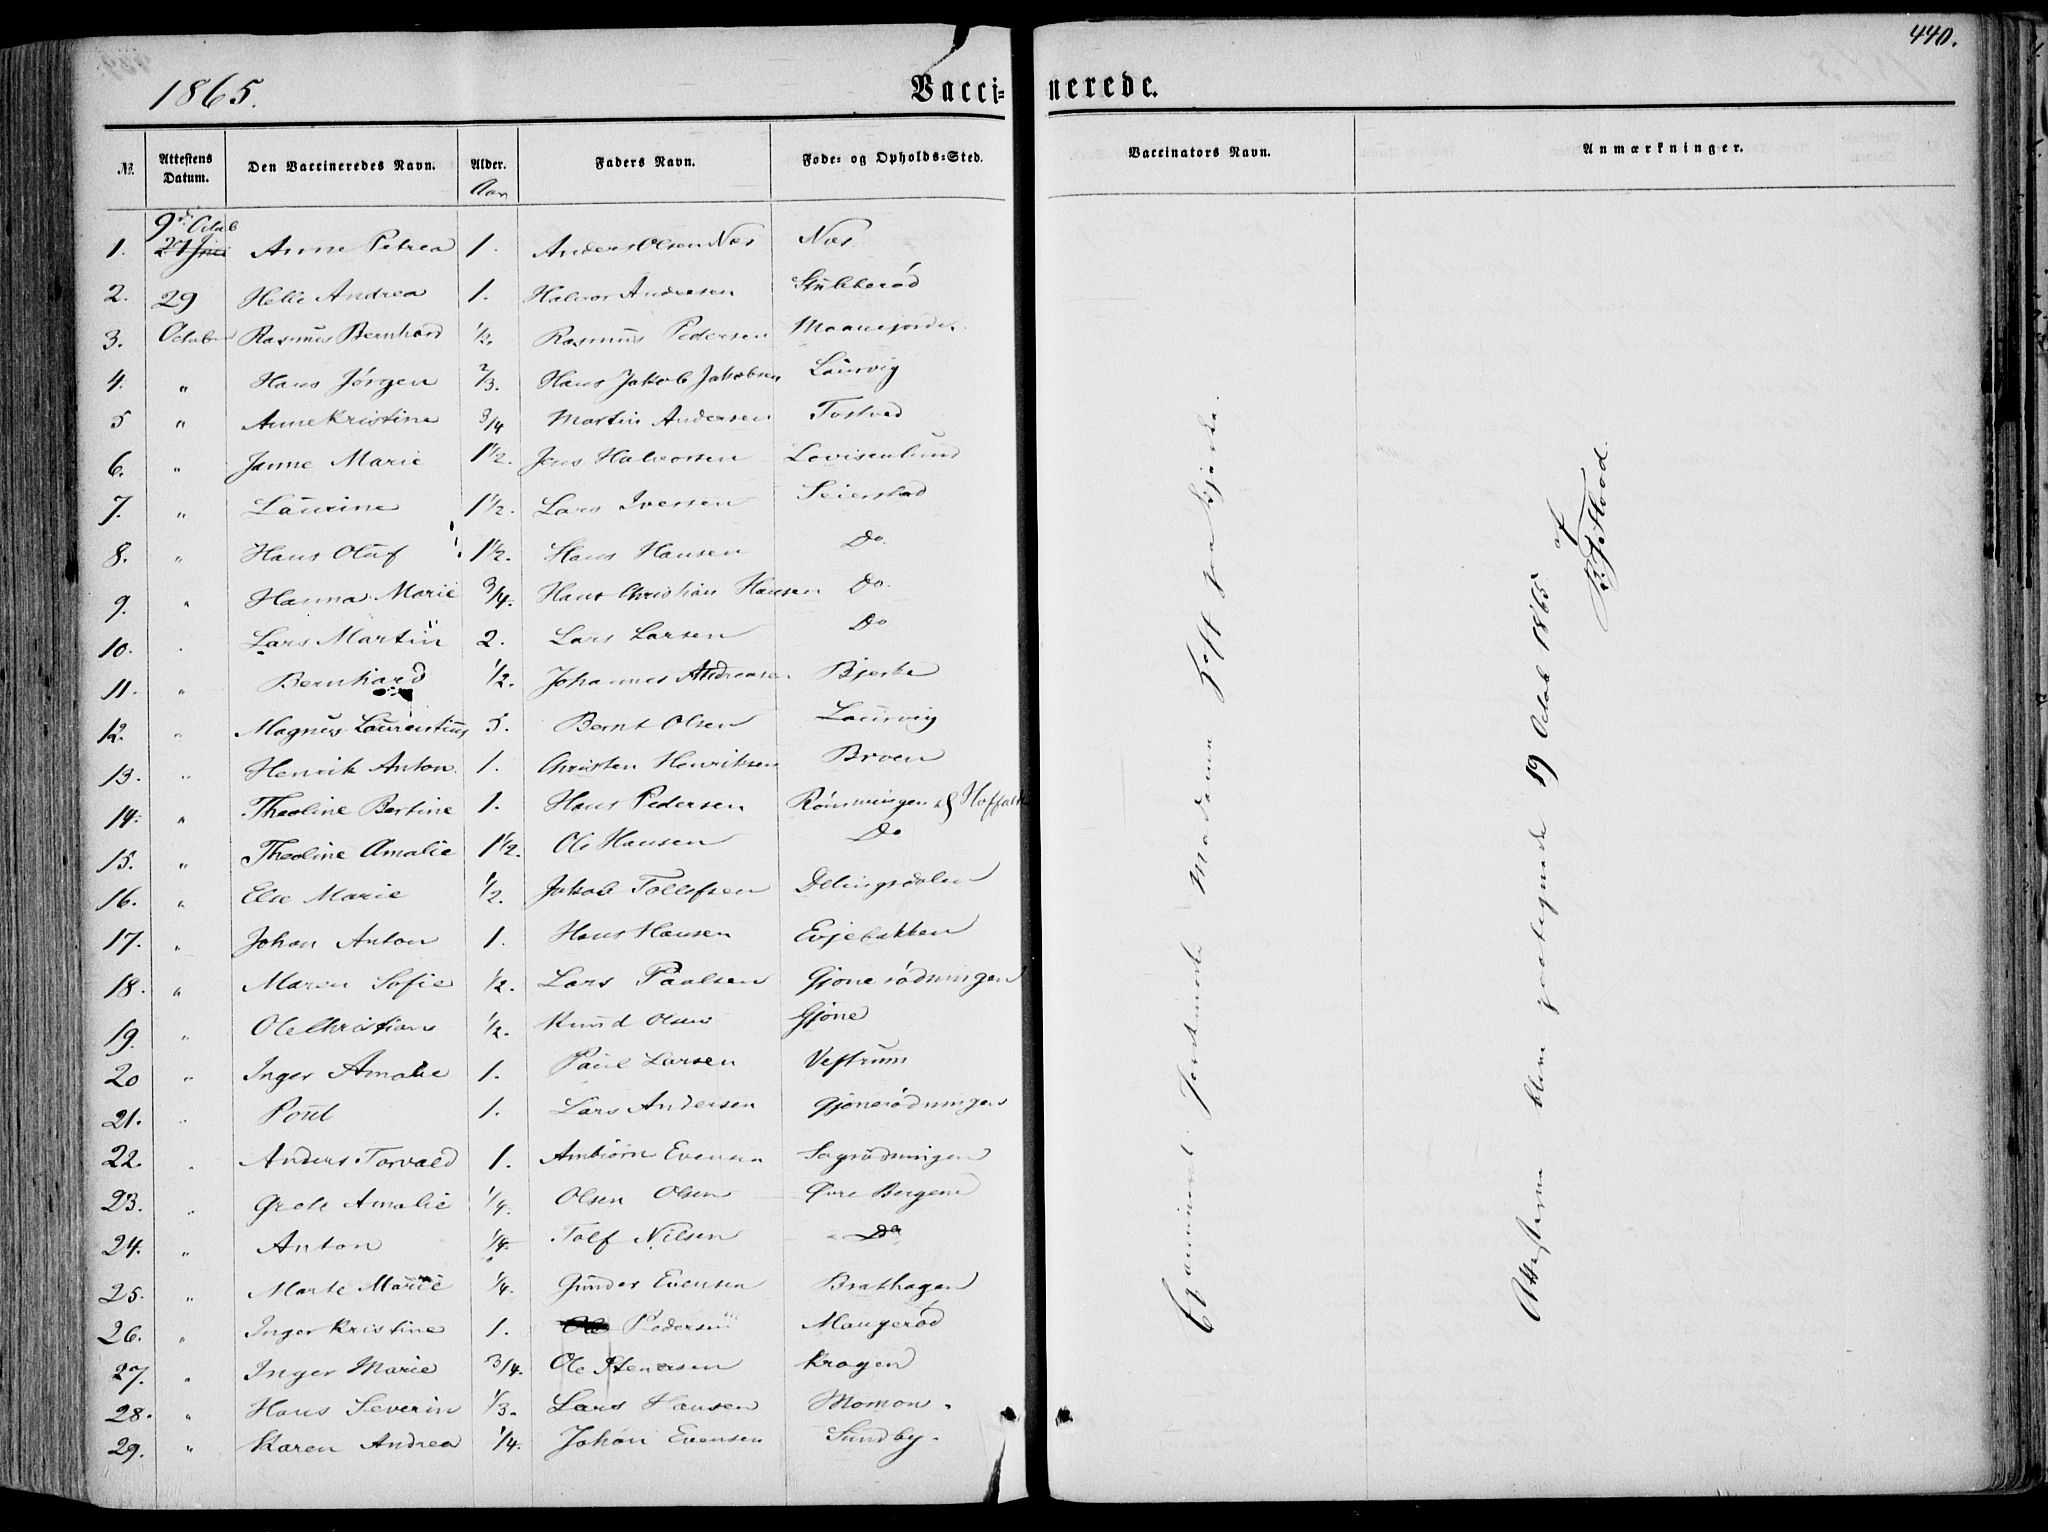 440.
1865.
Vacci- nerede.
№ Attestens Datum. Den Vaccineredes Navn. Alder. Faders Navn. Føde- og Opholds-Sted. Vaccinators Navn. Anmærkninger.
Aar
9de Octob
1. 27 Juni Anne Petrea 1. Anders Olsen Næs Næs
2. 29 Helle Andrea 1. Halvor Andersen Stubberød
3. October Rasmus Bernhard 1/2. Rasmus Pedersen Maanejordet
4. " Hans Jørgen 2/3. Hans Jakob Jakobsen Laurvig
5 " Anne Kristine 3/4 Martin Andersen Tostved
6. " Janne Marie 1 1/2. Jens Halvorsen Lovisenlund
7. " Laurine 1 1/2. Lars Iversen Seierstad
8. " Hans Oluf 1 1/2. Hans Hansen Do
9. " Hanna Marie 3/4. Hans Christian Hansen Do
10. Lars Martin 2. Lars Larsen Do
11. " Bernhard 1/2. Johannes Andreasen Bjerke
12. " Magnus Laurentius 5. Bernt Olsen Laurvig
13. " Henrik Anton. 1. Christen Henriksen Broen
14. " Theoline Bertine 1. Hans Pedersen Rønningen
15. " Theoline Amalie 1 1/2. Ole Hansen Do
16. " Else Marie 1/2. Jakob Tollefsen Delingsdalen
17. " Johan Anton 1. Hans Hansen Evjebakken
18. " Maren Sofie 1/2. Lars Paulsen Gjønerødningen
19. " Ole Christian 1/2. Knud Olsen Gjøne
20 " Inger Amalie 1. Paul Larsen Vestrum
21. " Poul 1. Lars Andersen Gjønerødningen
22. " Anders Torvald 1. Ambiørn Evensen Sagrødningen
23. " Grete Amalie 1/4. Olsen Olsen Øvre Bergene
24. " Anton 1/4. Tolf Nilsen " Do
25. " Marte Marie 1/4. Gunder Evensen Brathagen
26. " Inger Kristine 1. Ole Pedersen Maugerød
27. " Inger Marie 3/4. Ole Stenersen Kragen
28. " Hans Severin 1/3. Lars Hansen Momon.
29. " Karen Andrea 1/4. Johan Evensen Sundby.
Examineret Jordmoder Madame Toft fra
Attesterne bleve 19 Octob 1865 af
Flood.